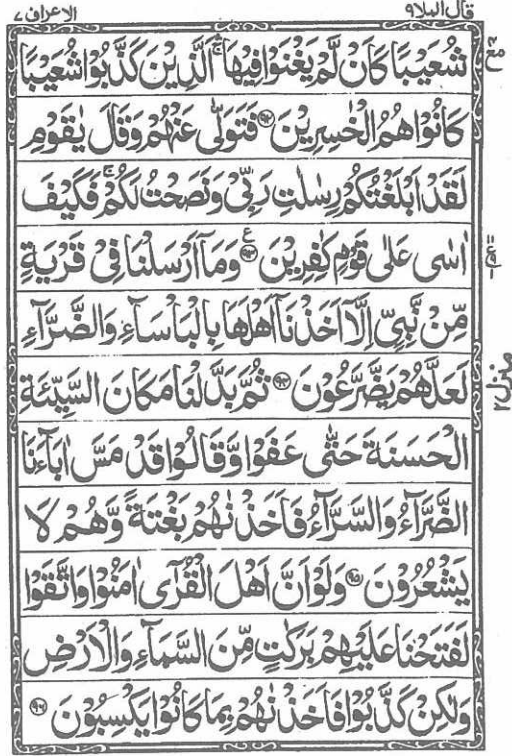 قال الملا ٩
الاعراف ٧
شُعَيْبًا كَاَنْ لَّمْ يَغْنَوْا فِيْهَا ۛۚ اَلَّذِيْنَ كَذَّبُوْا شُعَيْبًا
كَانُوْا هُمُ الْخٰسِرِيْنَ ﴿۹۲﴾ فَتَوَلّٰى عَنْهُمْ وَقَالَ يٰقَوْمِ
لَقَدْ اَبْلَغْتُكُمْ رِسٰلٰتِ رَبِّىْ وَنَصَحْتُ لَكُمْ ۚ فَكَيْفَ
اٰسٰى عَلٰى قَوْمٍ كٰفِرِيْنَ ﴿۹۳﴾ ع وَمَاۤ اَرْسَلْنَا فِىْ قَرْيَةٍ
مِّنْ نَّبِىٍّ اِلَّاۤ اَخَذْنَاۤ اَهْلَهَا بِالْبَاْسَآءِ وَالضَّرَّآءِ
لَعَلَّهُمْ يَضَّرَّعُوْنَ ﴿۹۴﴾ ثُمَّ بَدَّلْنَا مَكَانَ السَّيِّئَةِ
الْحَسَنَةَ حَتّٰى عَفَوْا وَّقَالُوْا قَدْ مَسَّ اٰبَآءَنَا
الضَّرَّآءُ وَالسَّرَّآءُ فَاَخَذْنٰهُمْ بَغْتَةً وَّهُمْ لَا
يَشْعُرُوْنَ ﴿۹۵﴾ وَلَوْ اَنَّ اَهْلَ الْقُرٰٓى اٰمَنُوْا وَاتَّقَوْا
لَفَتَحْنَا عَلَيْهِمْ بَرَكٰتٍ مِّنَ السَّمَآءِ وَالْاَرْضِ
وَلٰكِنْ كَذَّبُوْا فَاَخَذْنٰهُمْ بِمَا كَانُوْا يَكْسِبُوْنَ ﴿۹۶﴾
منزل ٢